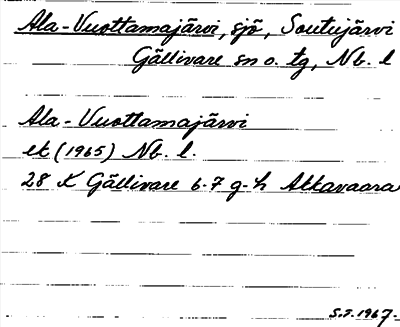 Ala-Vuottamajärvi, sjö, Soutujärvi
Gällivare sn o. tg, Nb. l
Ala-Vuottamajärvi
ek (1965) Nb. l.
28 K Gällivare 6-7 g-h Akkavaara
S.J. 1967.